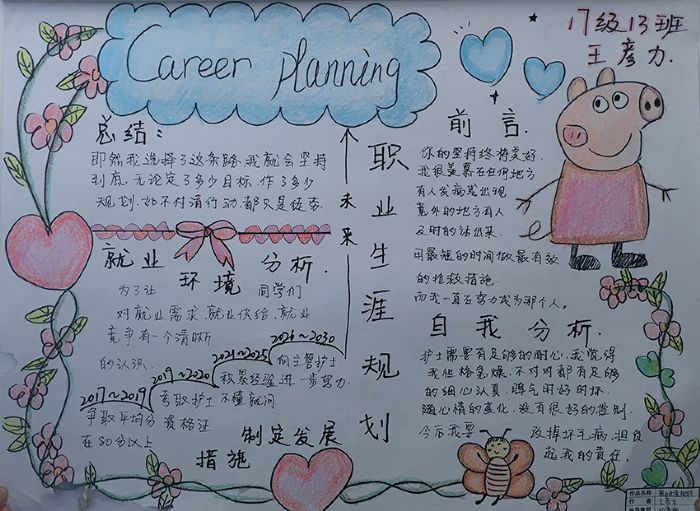 Career planning
17级13班
王彦力.
总结:
即然我选择了这条路,我就会坚持
到底,无论定了多少目标,作了多少
规划,如不付诸行动,都只是徒劳.
未来
职业生涯规划
前言.
你的坚持终将美好.
我很羡慕在任何地方
有人发病或出现
意外的地方有人
及时的站出来.
用最短的时间做最有效
的抢救措施.
而我一直在努力成为那个人.
就业环境分析.
为了让同学们
对就业需求,就业供给,就业
竞争有一个清晰
的认识.
2017~2019
争取平均分
在80分以上
2019~2020
考取护士
资格证
2021~2025
积累经验
不懂就问
2026~2030
向主管护士
进一步努力.
制定发展
措施
自我分析.
护士需要有足够的耐心,我觉得
我性格急燥,不对对都有足够
的细心认真,脾气时好时坏.
随心情的变化,没有很好的控制.
今后我要改掉坏毛病,担负
起我的责任.
作品名称
作者
王彦力